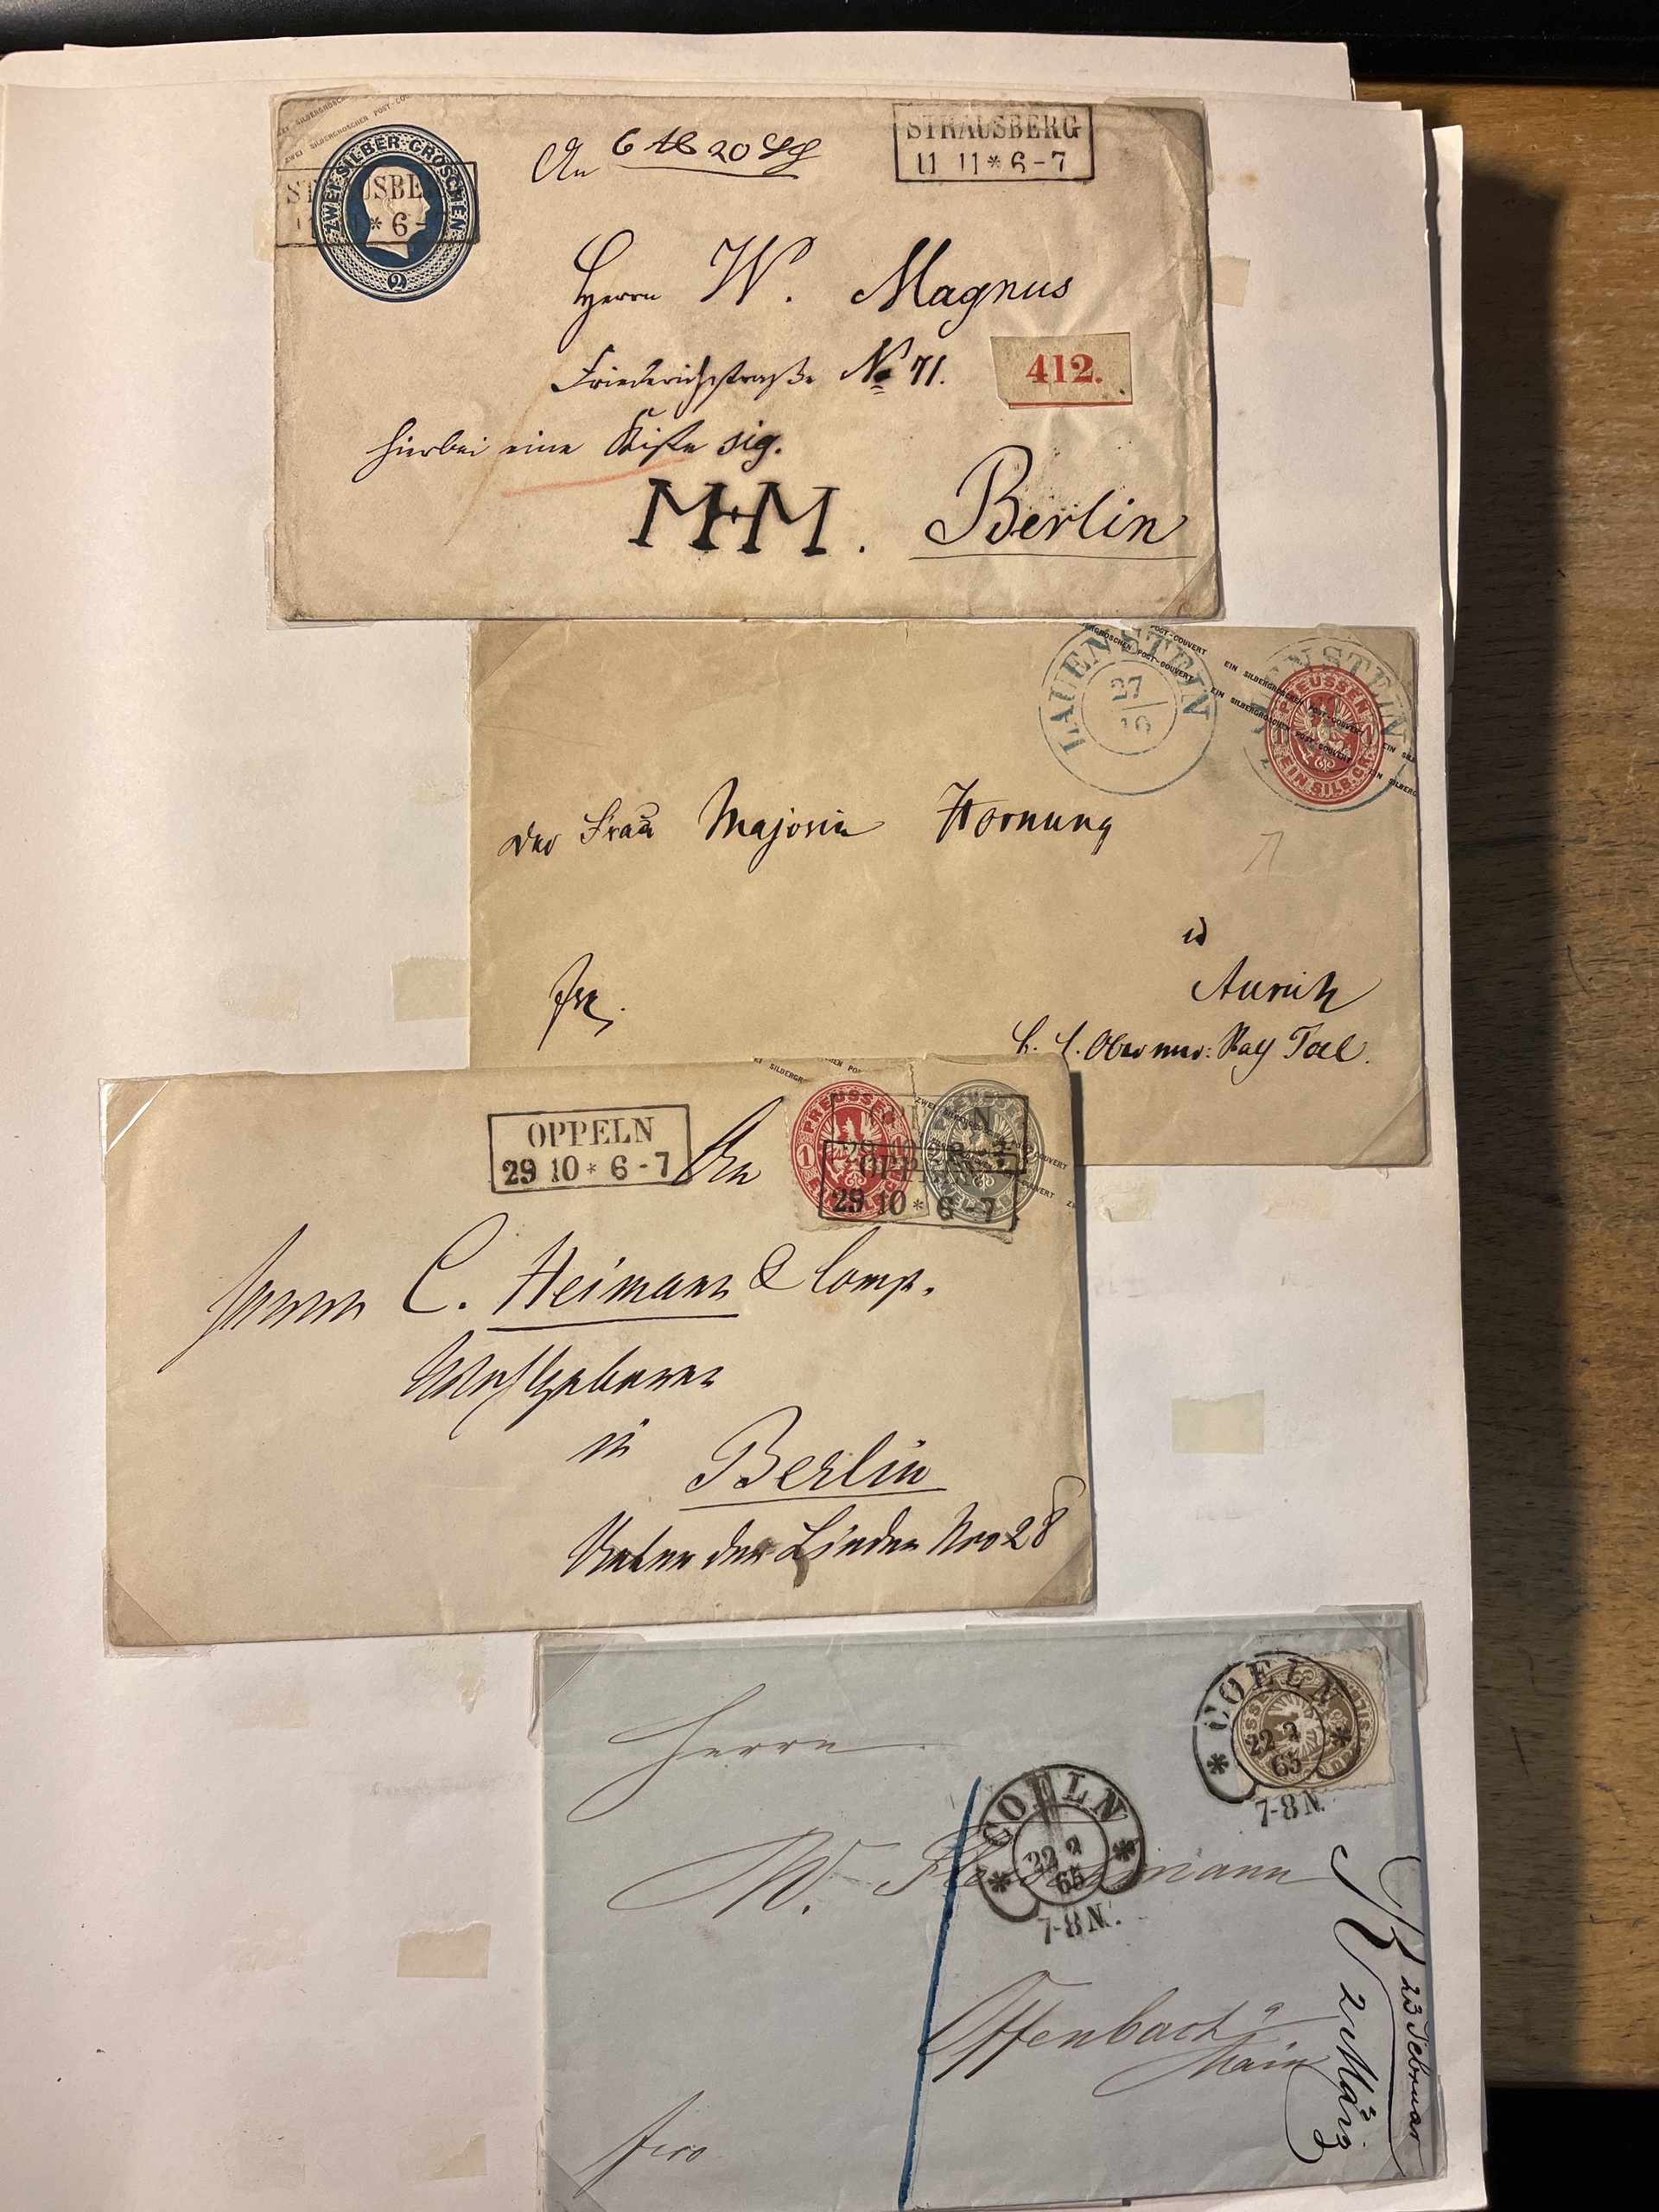 ZWEI SILBERGROSCHEN POST-COU
ZWEI SILBER-GROSCHEN
2
ST USBE
* 6-
An 6 20
STRAUSBERG
11 11 * 6-7
Herrn W. Magnus
Friedrichstraße No 71.
412.
hierbei eine Kiste sig.
M+M.
Berlin
LAUENSTEIN
27
10
POST-COUVERT EIN SILBERGROSCHEN POST-COUVERT
ENSTEIN
PREUSSEN
1 1
EIN SILB.GR.
Der Frau Majorin Hornung
Aurich
OPPELN
29 10 * 6-7
An
PREUSSEN
1
PREUSSEN
ZWEI SILBERGROSCHEN POST-COUVERT
OPPELN
29 10 * 6-7
Herrn C. Heimann & Comp.
Wohlgeboren
in
Berlin
Unter den Linden Nro 28
COELN
22 2
65
7-8 N.
Herrn
COELN
22 2
65
7-8 N.
W. mann
Offenbach a
Main
fro
23 Februar
2 März